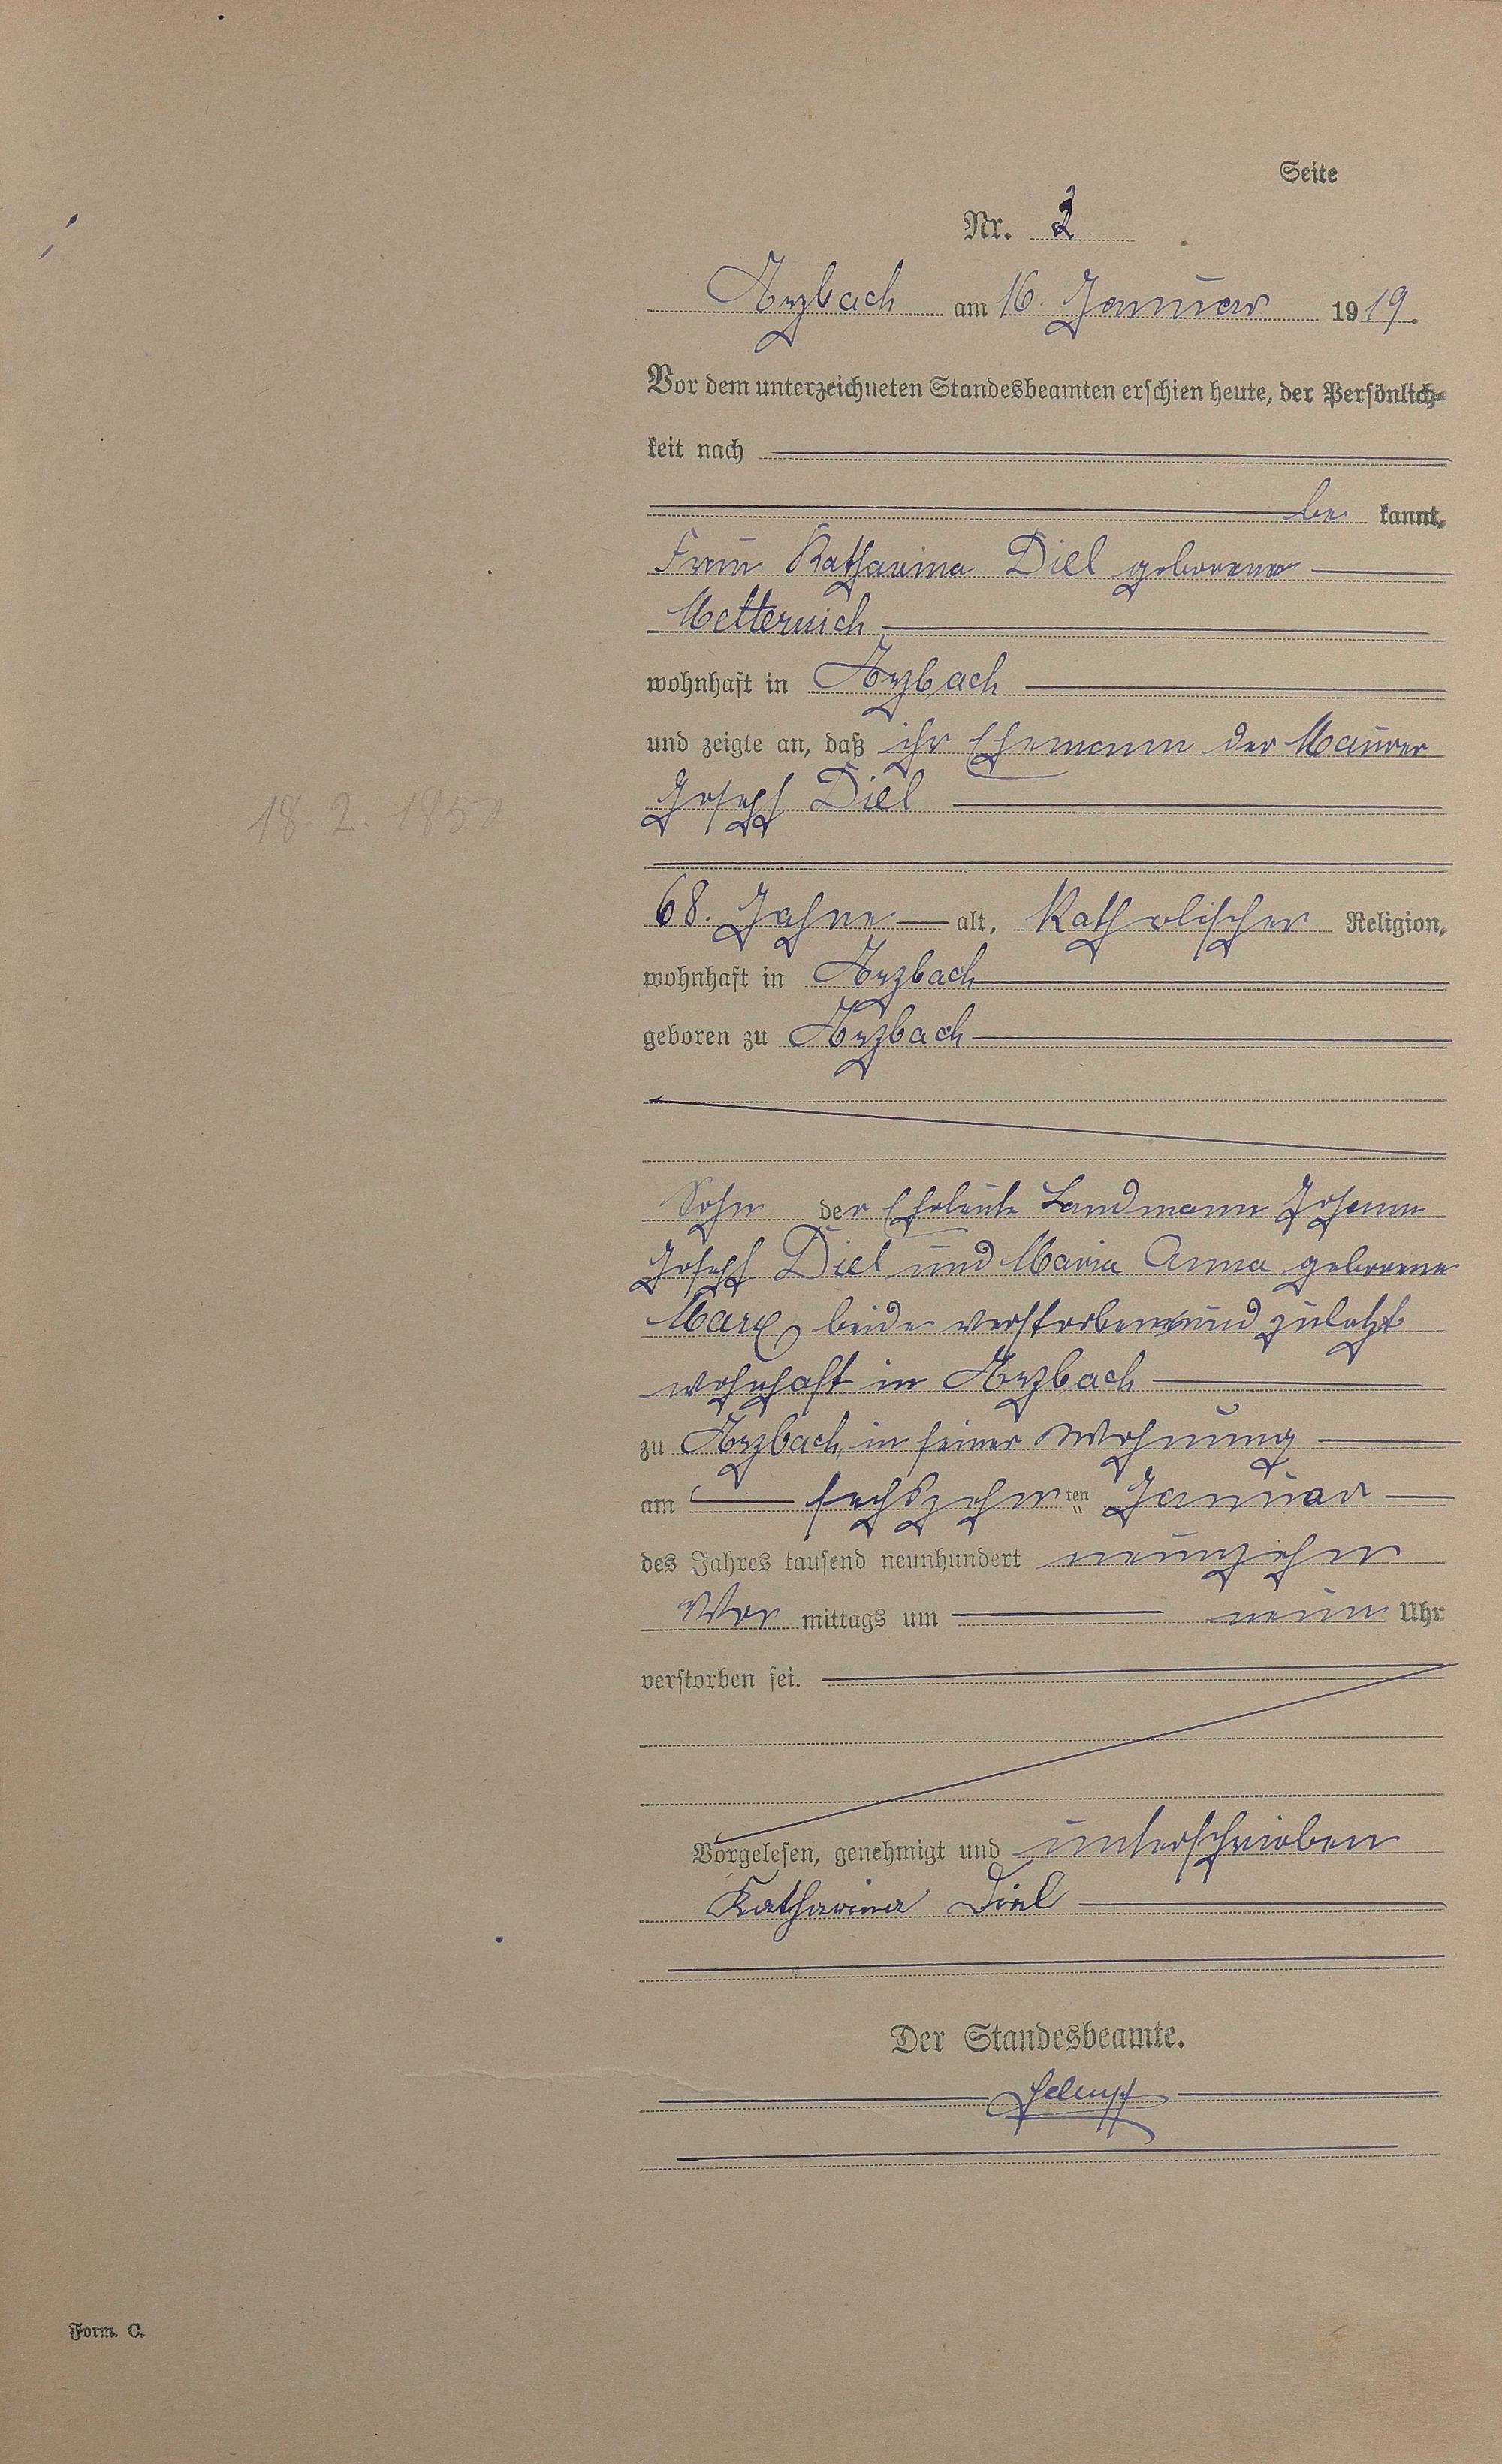 Seite
Nr. 2
Arzbach am 16. Januar 1919.
Vor dem unterzeichneten Standesbeamten erschien heute, der Persönlich-
keit nach
be kannt,
Frau Katharina Diel geborene
Metternich
wohnhaft in Arzbach
und zeigte an, daß ihr Ehemann der Maurer
Joseph Diel
18.2.1850
68. Jahre alt, Katholischer Religion,
wohnhaft in Arzbach
geboren zu Arzbach
Sohn der Eheleute Landmann Johann
Joseph Diel und Maria Anna geborene
Marx beide verstorben und zuletzt
wohnhaft in Arzbach
zu Arzbach, in seiner Wohnung
am sechszehnten Januar
des Jahres tausend neunhundert neunzehn
Vor mittags um neun Uhr
verstorben sei.
Vorgelesen, genehmigt und unterschrieben
Katharina Diel
Der Standesbeamte.
Form. C.